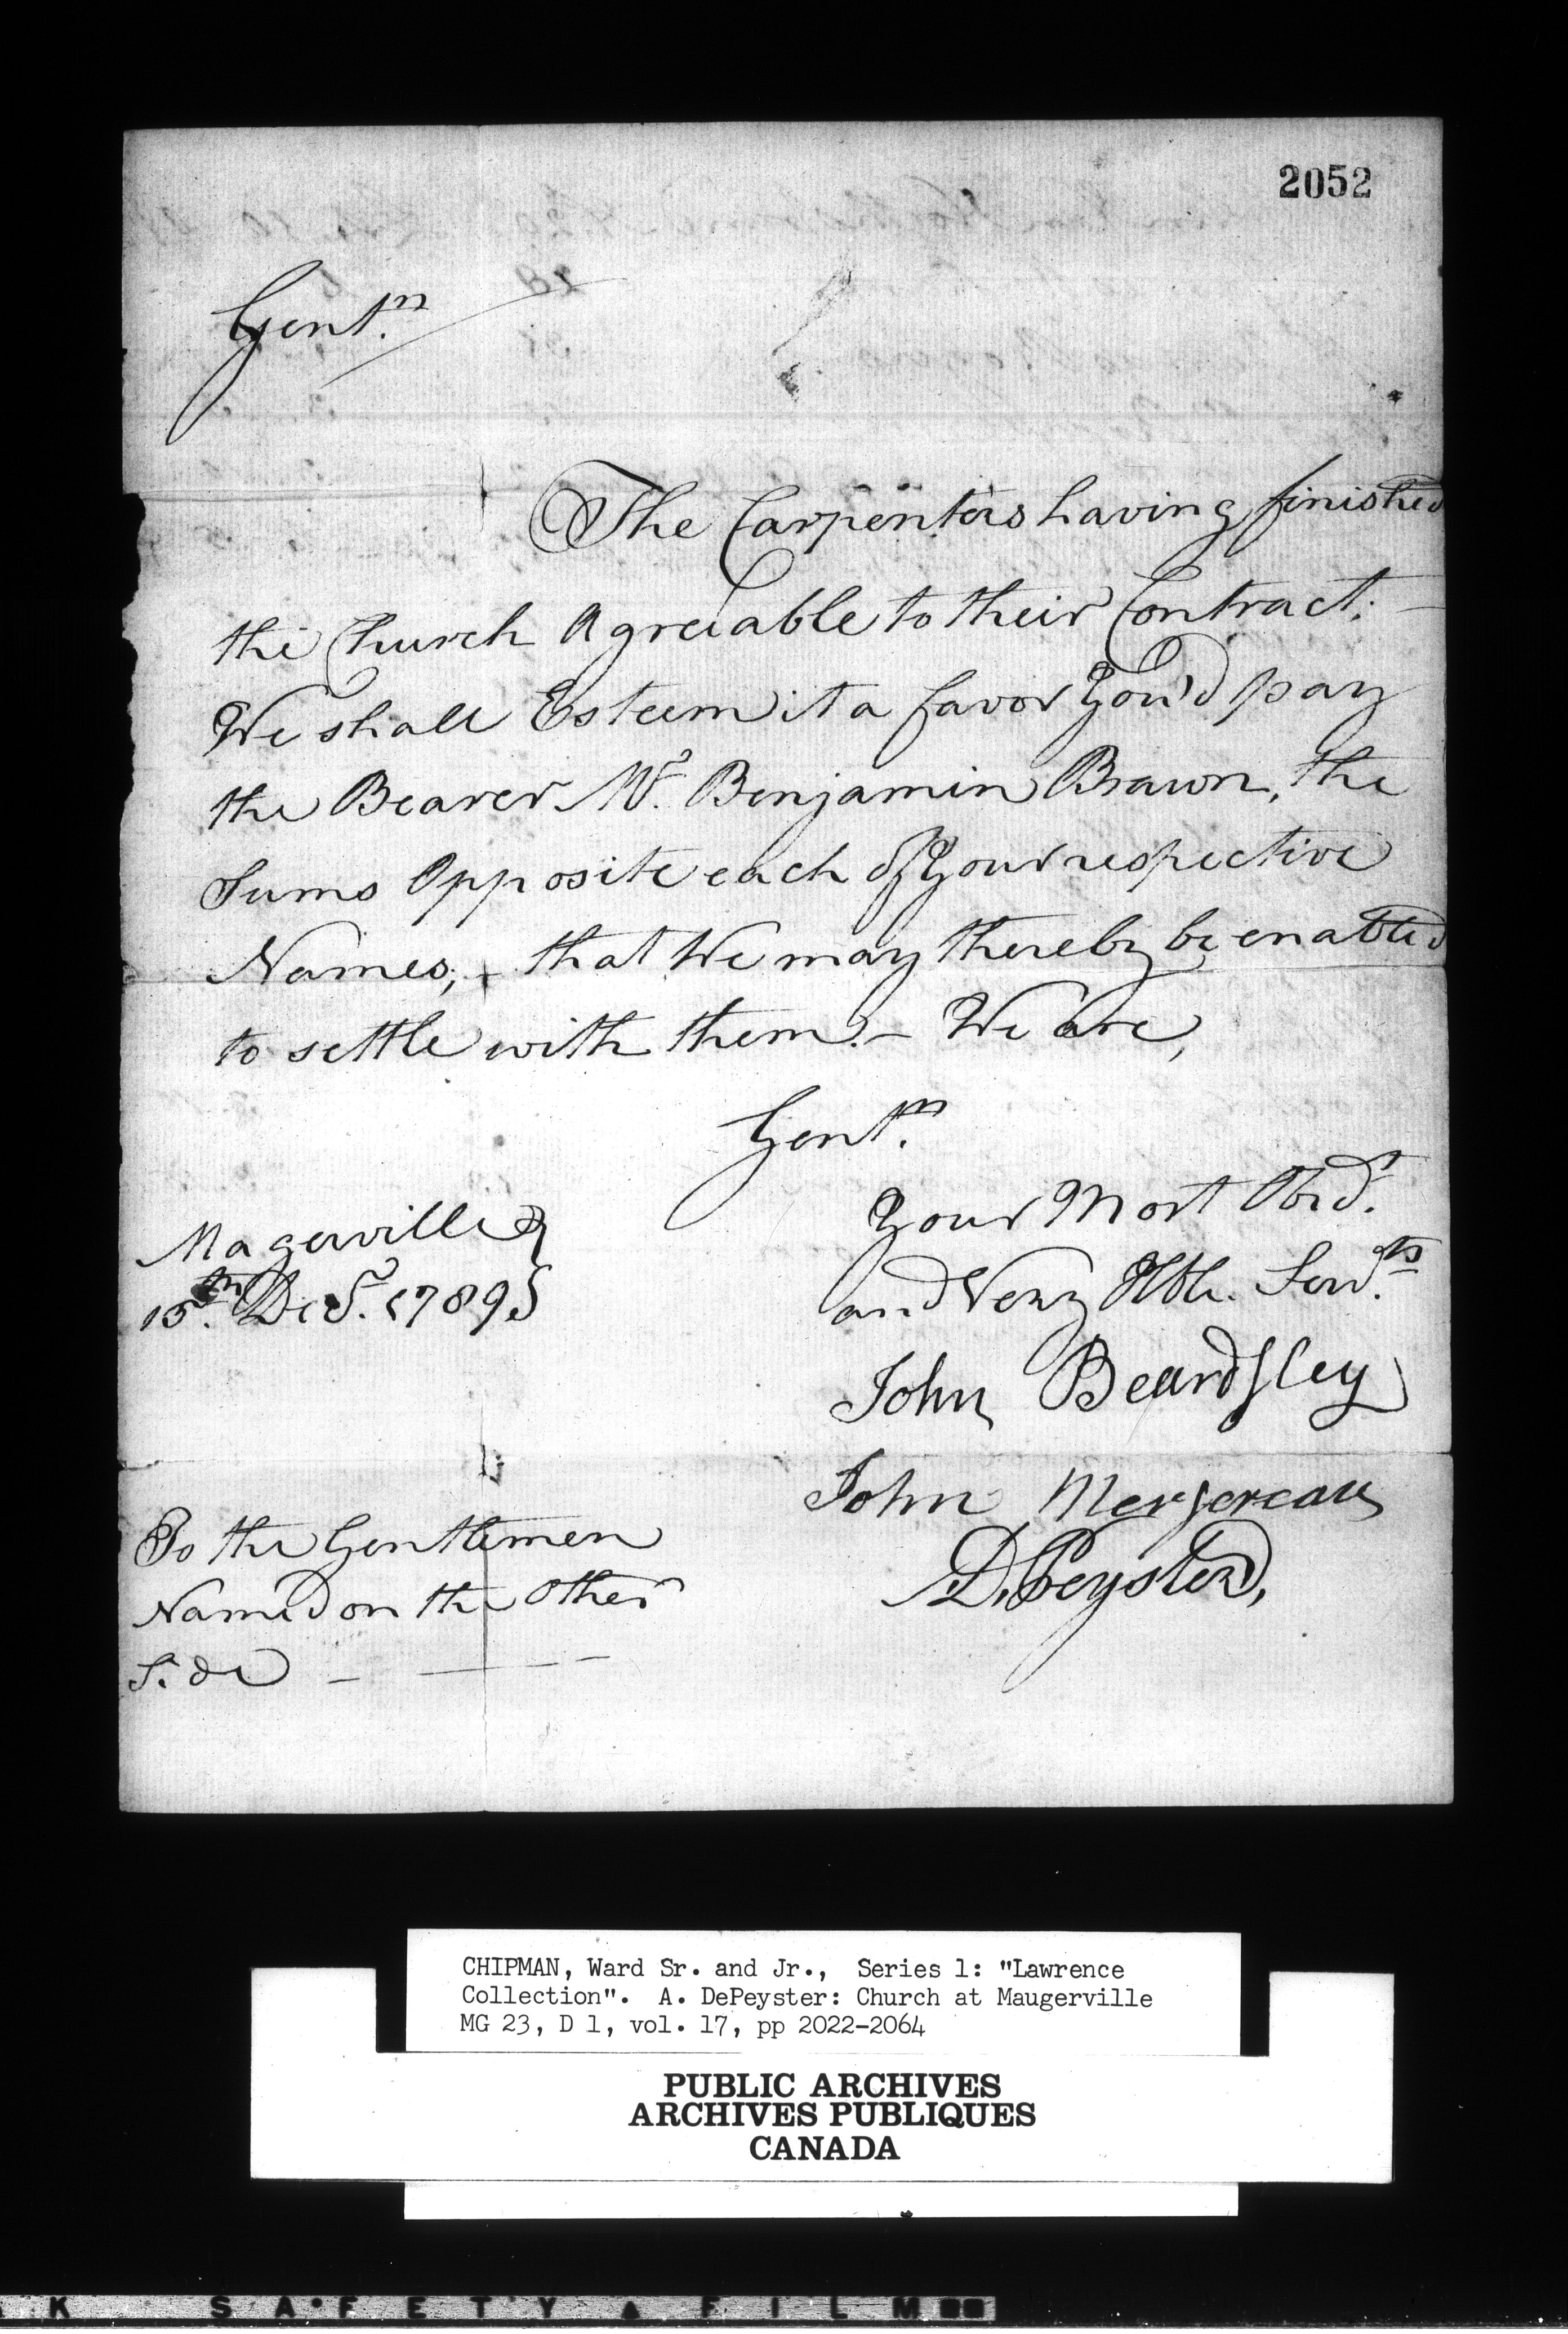 2052
Gentn.
The Carpenters having finished
the Church Agreeable to their Contract. —
We shall Esteem it a favor You'd pay
the Bearer Mr. Benjamin Brawn, the
Sums Opposite each of Your respective
Names, that We may thereby be enabled
to settle with them. — We are,
Gentn.
Your Most Obdt.
and Very Hble. Servts.
Magerville
15th. Decr. 1789
John Beardsley
John Mersereau
D.Peyster,
To the Gentlemen
Named on the Other
Side — — — —
CHIPMAN, Ward Sr. and Jr., Series 1: "Lawrence
Collection". A. DePeyster: Church at Maugerville
MG 23, D 1, vol. 17, pp 2022-2064
PUBLIC ARCHIVES
ARCHIVES PUBLIQUES
CANADA
K SAFETY ▲ FILM